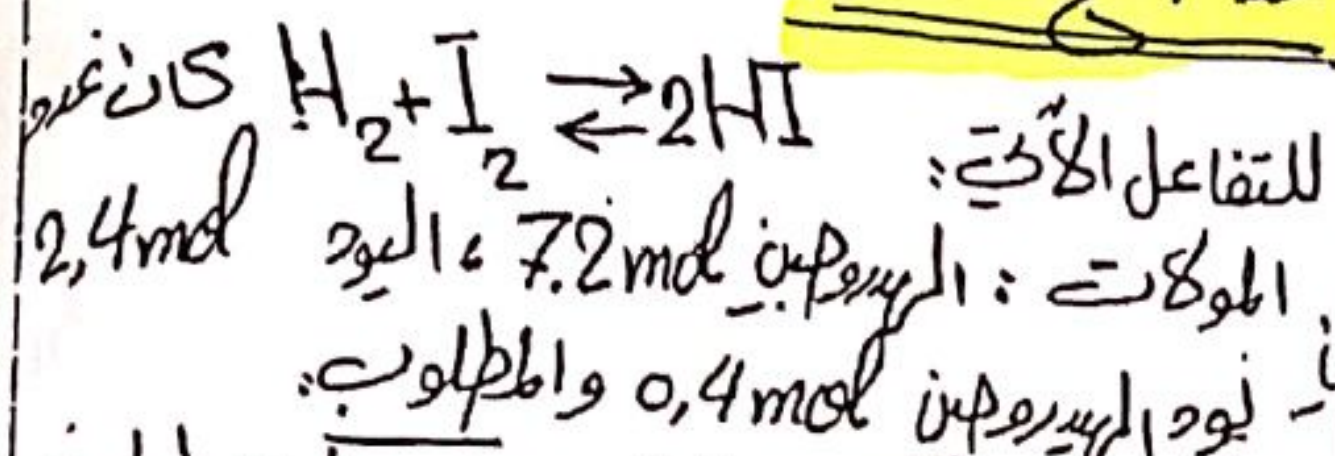 للتفاعل الآتي: H₂ + I₂ ⇌ 2HI كان عدد
المولات: الهيدروجين 7.2mol، اليود 2,4mol
يود الهيدروجين 0,4mol والمطلوب: